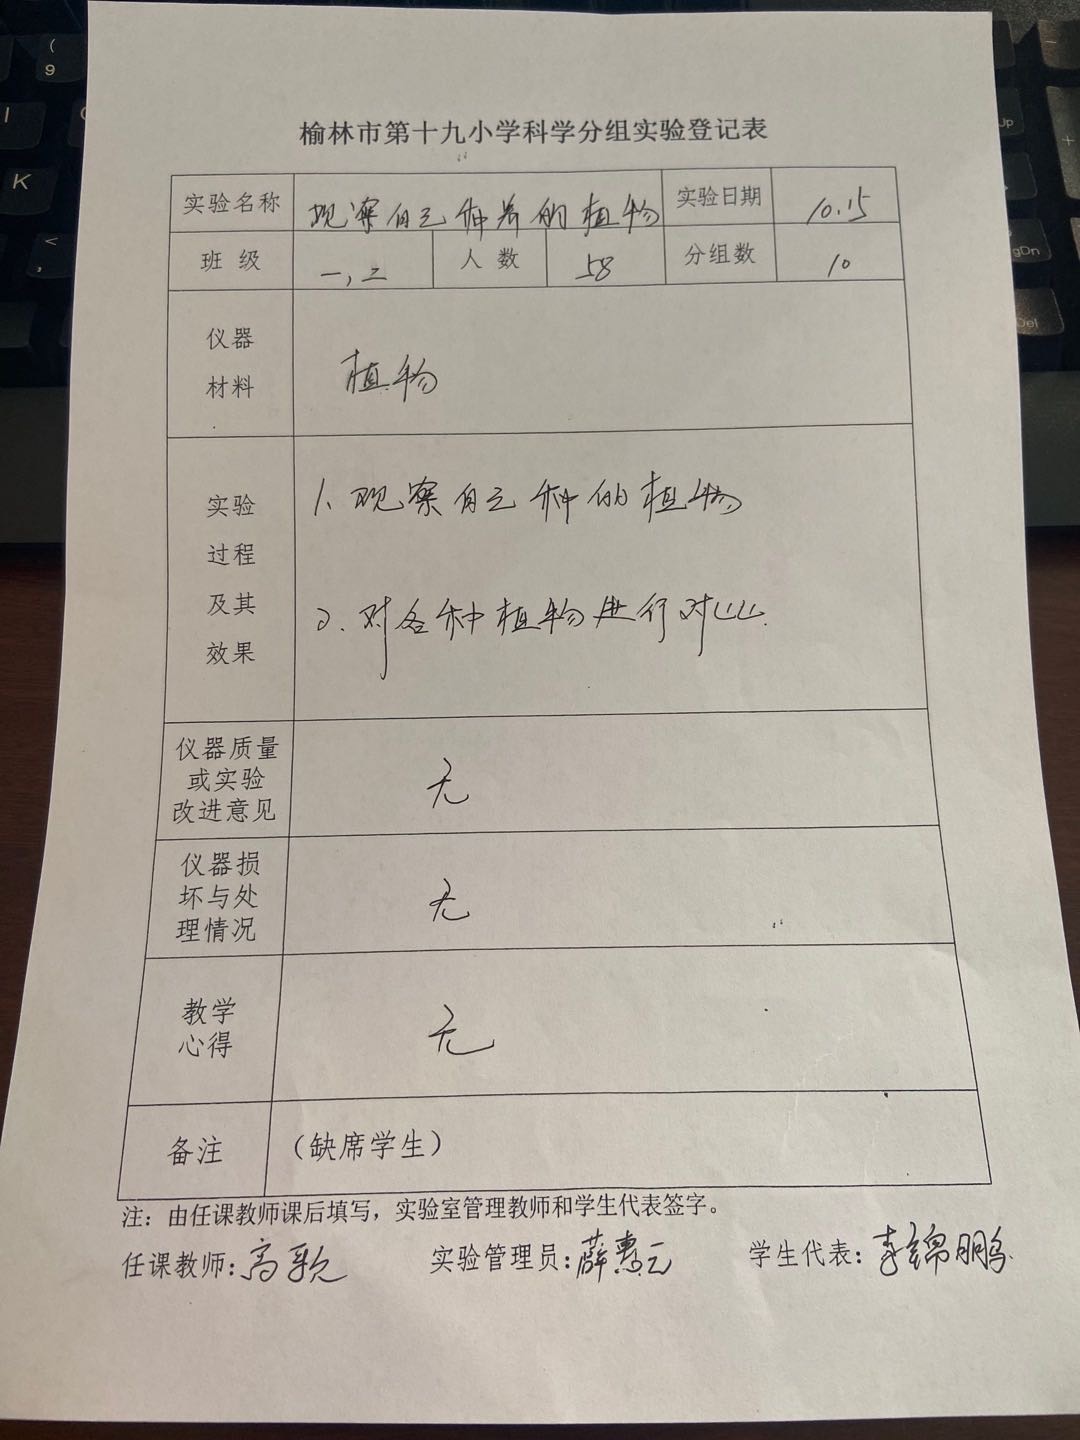 榆林市第十九小学科学分组实验登记表
实验名称 观察自己种养的植物 实验日期 10.15
班级 一,二 人数 58 分组数 10
仪器
材料
植物
实验
过程
及其
效果
1、观察自己种的植物
2、对各种植物进行对比.
仪器质量
或实验
改进意见
无
仪器损
坏与处
理情况
无
教学
心得
无
备注 (缺席学生)
注：由任课教师课后填写，实验室管理教师和学生代表签字。
任课教师：高歌 实验管理员：薛惠云 学生代表：李锦鹏